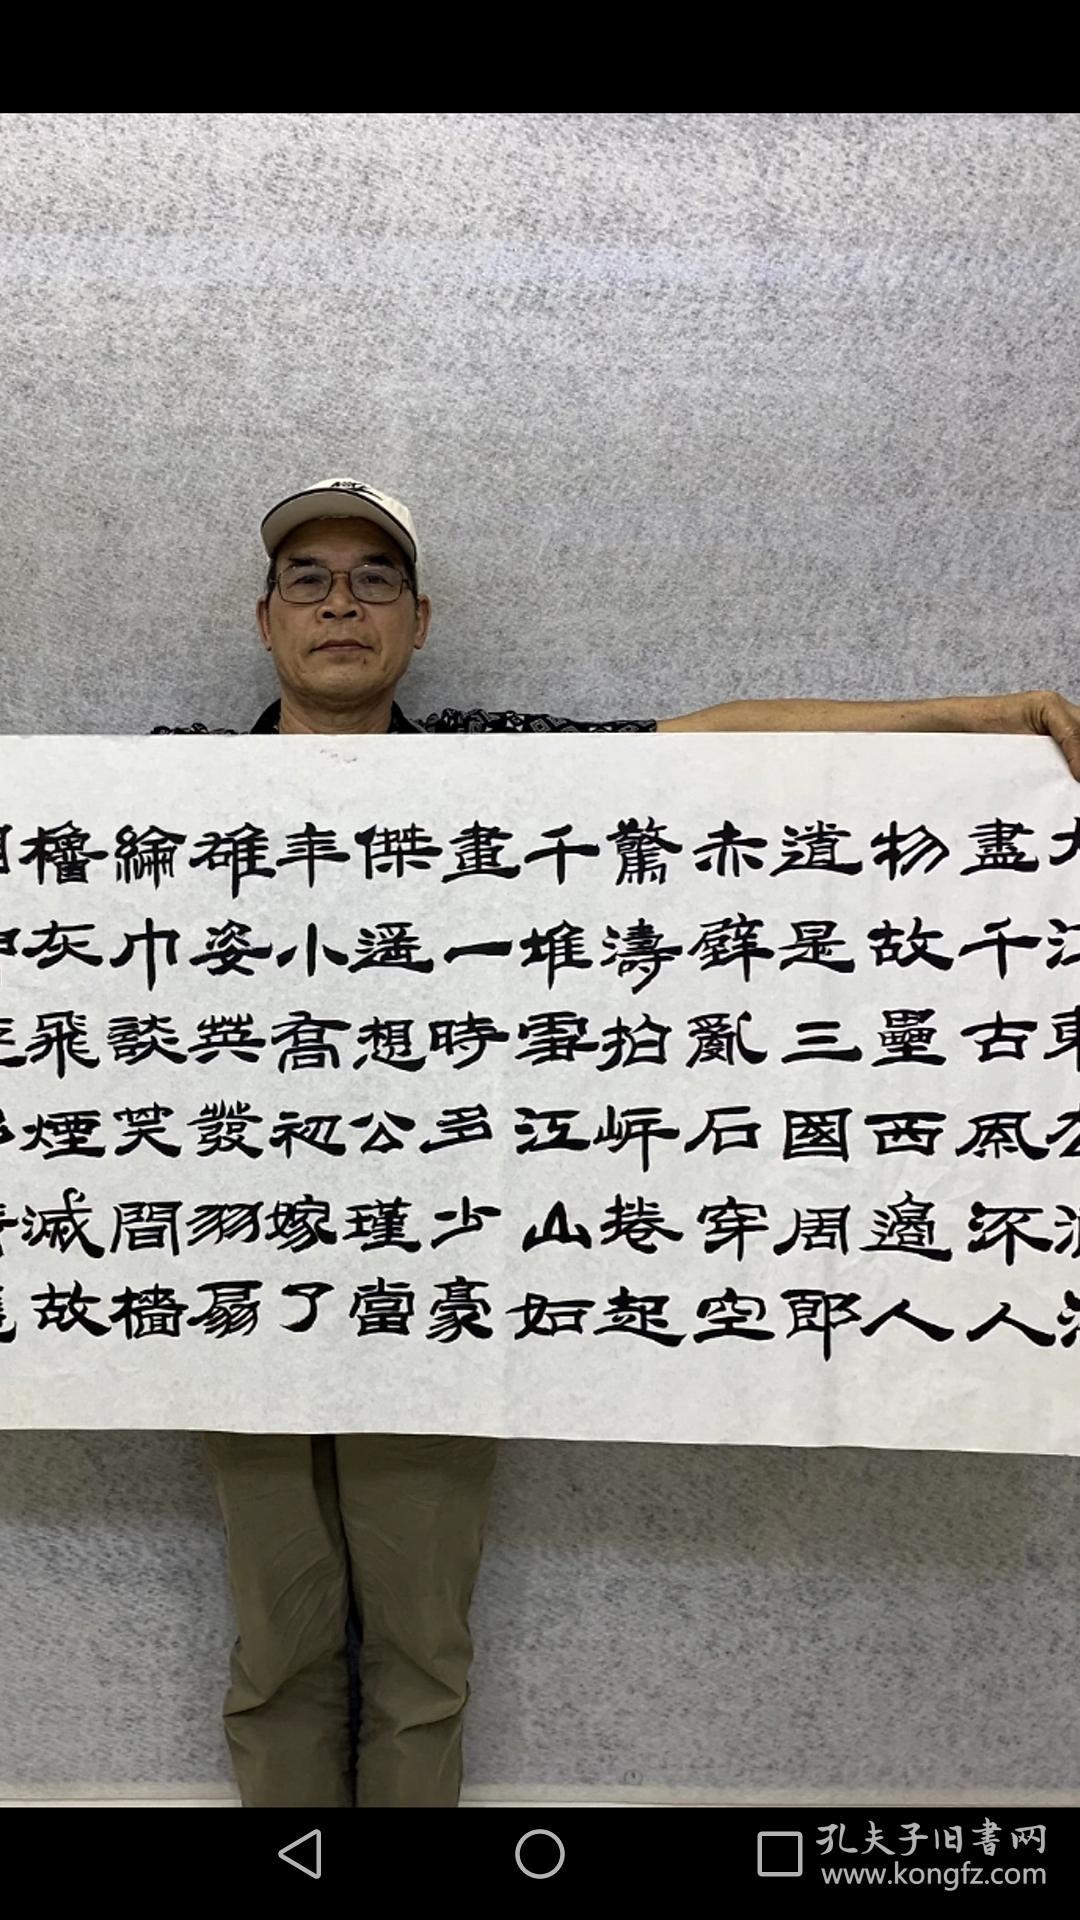 盡千古風流人
物故壘西邊人
道是三國周郎
赤壁亂石穿空
驚濤拍岸捲起
千堆雪江山如
畫一時多少豪
傑遥想公瑾當
年小喬初嫁了
雄姿英發羽扇
綸巾談笑間檣
櫓灰飛煙滅故
孔夫子旧書网
www.kongfz.com